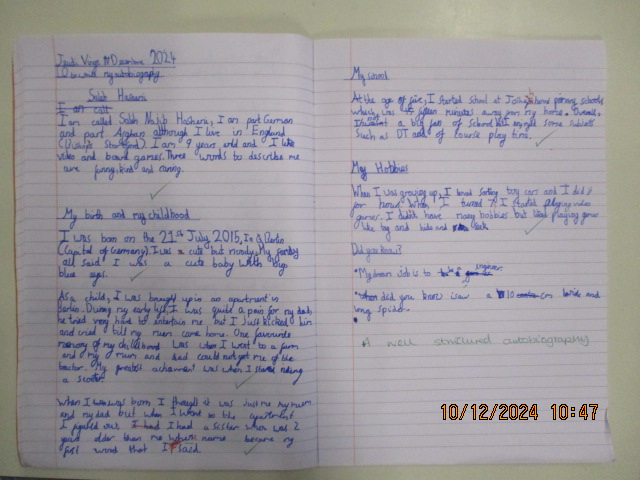 December 2024
my autobiography
Salah Hashemi
I am call
I am called Salah Hashemi, I am part German
and part Afghan although I live in England
I am 9 years old and I like
video and board games. Three words to describe me
are funny, kind and caring.
My birth and my childhood
I was born on the 21st July 2015, In Berlin
(Capital of Germany). I was a cute but My family
all said I was a cute baby with big
blue eyes.
As a child, I was brought up in an apartment in
Berlin. During my early life, I was quite a pain for my dad,
he tried very hard to entertain me, but I just kicked him
and cried till my mum came home. One favourite
memory of my childhood was when I went to a farm
and my mum and dad could not get me off the
tractor. My greatest achievement was when I started riding
a scooter.
When I was born I thought it was just me my mum
and my dad but when I went to the apartment
I figured out I had a sister who was 2
years older than me whose name became my
first word that I said.
My school
At the age of five, I started school at primary school
which was fifteen minutes away from my house. Overall,
a big fan of school but enjoyed some subjects
such as DT and of course play time.
My Hobbies
When I was growing up, I loved sorting toy cars and I did it
for hours. When I turned 7 I started playing video
games. I didn't have many hobbies but liked playing games
like tag and hide and seek
Did you know?
• My dream job is to be a engineer.
• did you know I saw a 10 cm wide and
long spider.
A well structured autobiography
10/12/2024 10:47